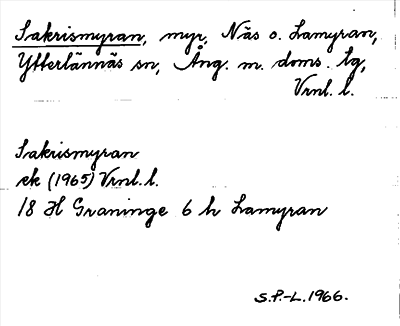 Sakrismyran, myr, Näs o. Lamyran,
Ytterlännäs sn, Ång. m. doms. lg,
Vrnl. l.
Sakrismyran
ek (1965) Vrnl. l.
18 H Graninge 6 h Lamyran
S.P.-L. 1966.